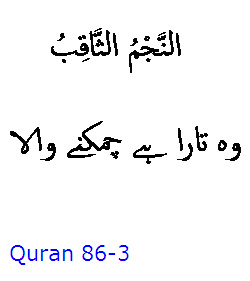 النَّجْمُ الثَّاقِبُ
وہ تارا ہے چمکنے والا
Quran 86-3